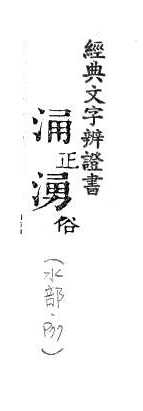 經典文字辨證書
涌正湧俗
(水部,P37)